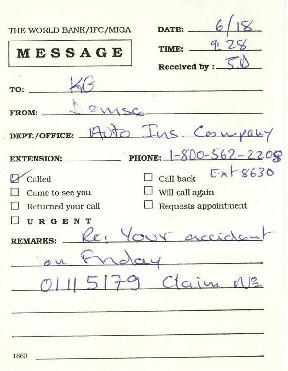 THE WORLD BANK/IFC/MIGA
MESSAGE
DATE: 6/18
TIME: 9:28
Received by: SD
TO: KG
FROM: Denise
DEPT./OFFICE: Auto Ins. Company
EXTENSION: PHONE: 1-800-562-2208
Ext 8630
Called Call back
Came to see you Will call again
Returned your call Requests appointment
URGENT
REMARKS: Re: Your accident
on Friday
01115179 Claim No
1860